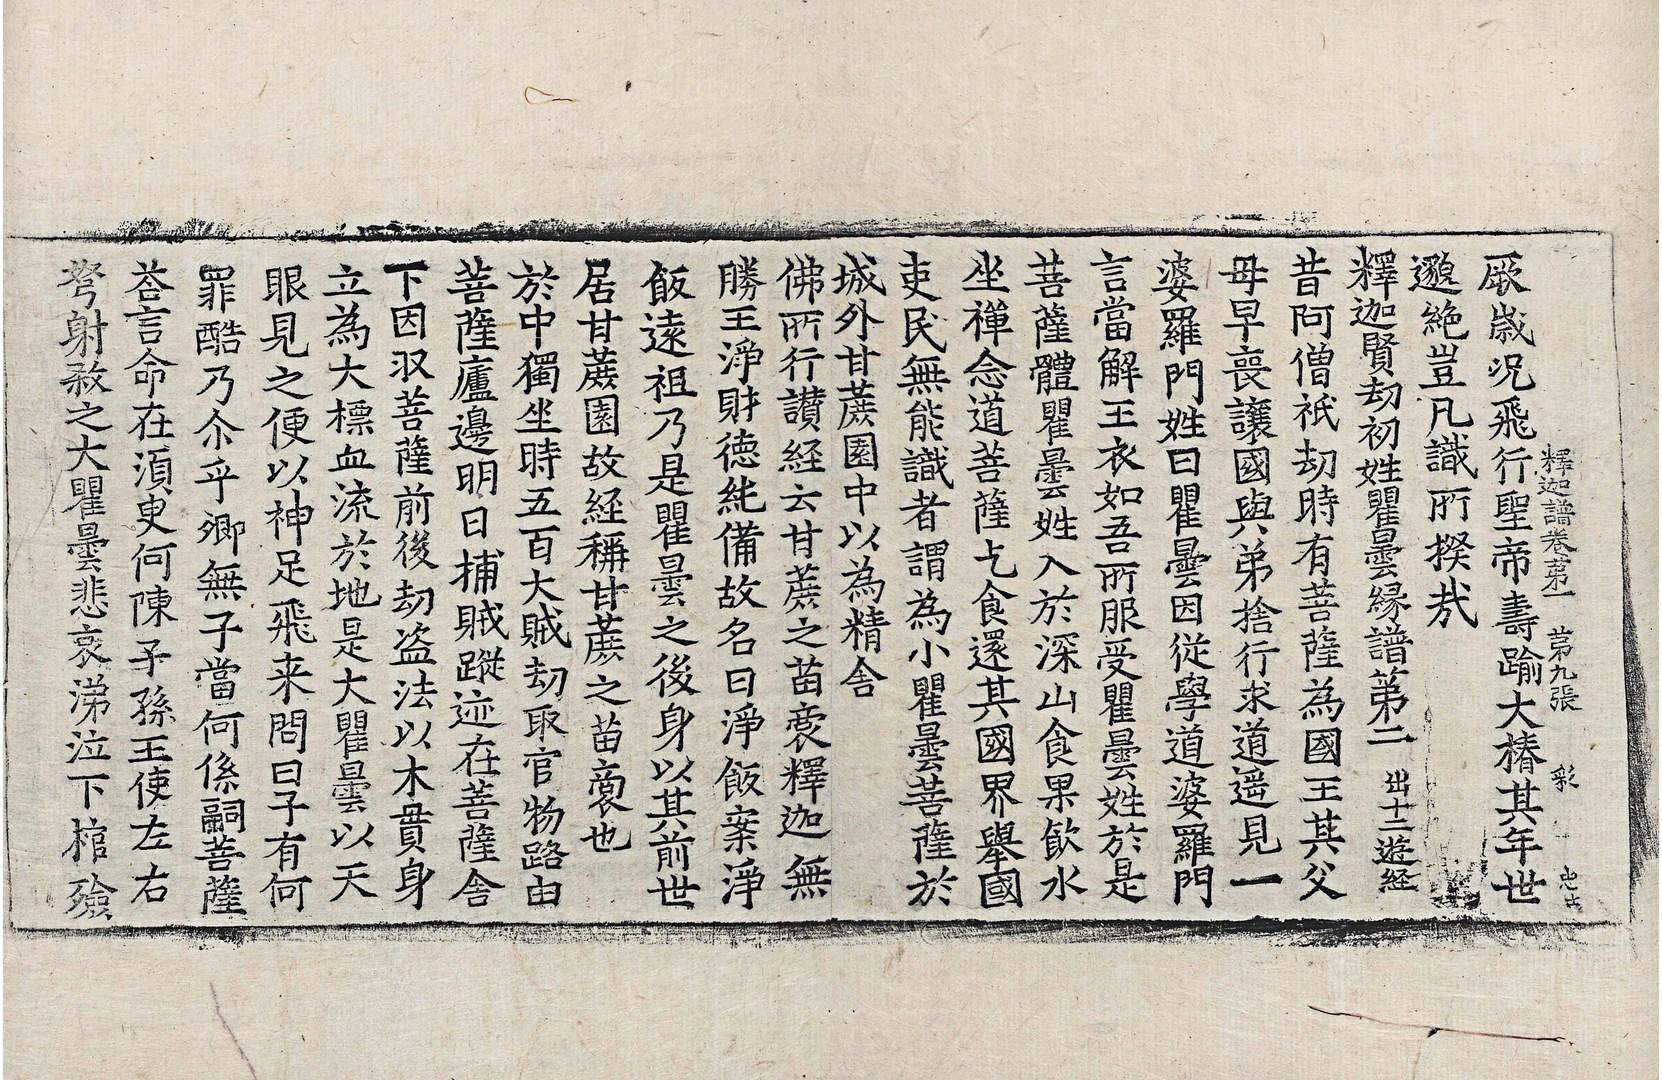 釋迦譜卷第一 第九張 彩
厥歲況飛行聖帝壽踰大椿其年世
邈絶豈凡識所揆㢤
釋迦賢劫初姓瞿曇縁譜第二 出十二遊経
昔阿僧祇劫時有菩薩為國王其父
母早喪讓國與弟捨行求道遥見一
婆羅門姓曰瞿曇因從學道婆羅門
言當解王衣如吾所服受瞿曇姓於是
菩薩體瞿曇姓入於深山食果飲水
坐禪念道菩薩乞食還其國界舉國
吏民無能識者謂為小瞿曇菩薩於
城外甘蔗園中以為精舍
佛所行讃経云甘蔗之苗裔釋迦無
勝王淨財德純備故名曰淨飯案淨
飯遠祖乃是瞿曇之後身以其前世
居甘蔗園故経稱甘蔗之苗裔也
於中獨坐時五百大賊劫取官物路由
菩薩廬邊明日捕賊蹤迹在菩薩舍
下因収菩薩前後劫盗法以木貫身
立為大標血流於地是大瞿曇以天
眼見之便以神足飛来問曰子有何
罪酷乃尒乎卿無子當何係嗣菩薩
荅言命在湏臾何陳子孫王使左右
弩射殺之大瞿曇悲哀涕泣下棺殮